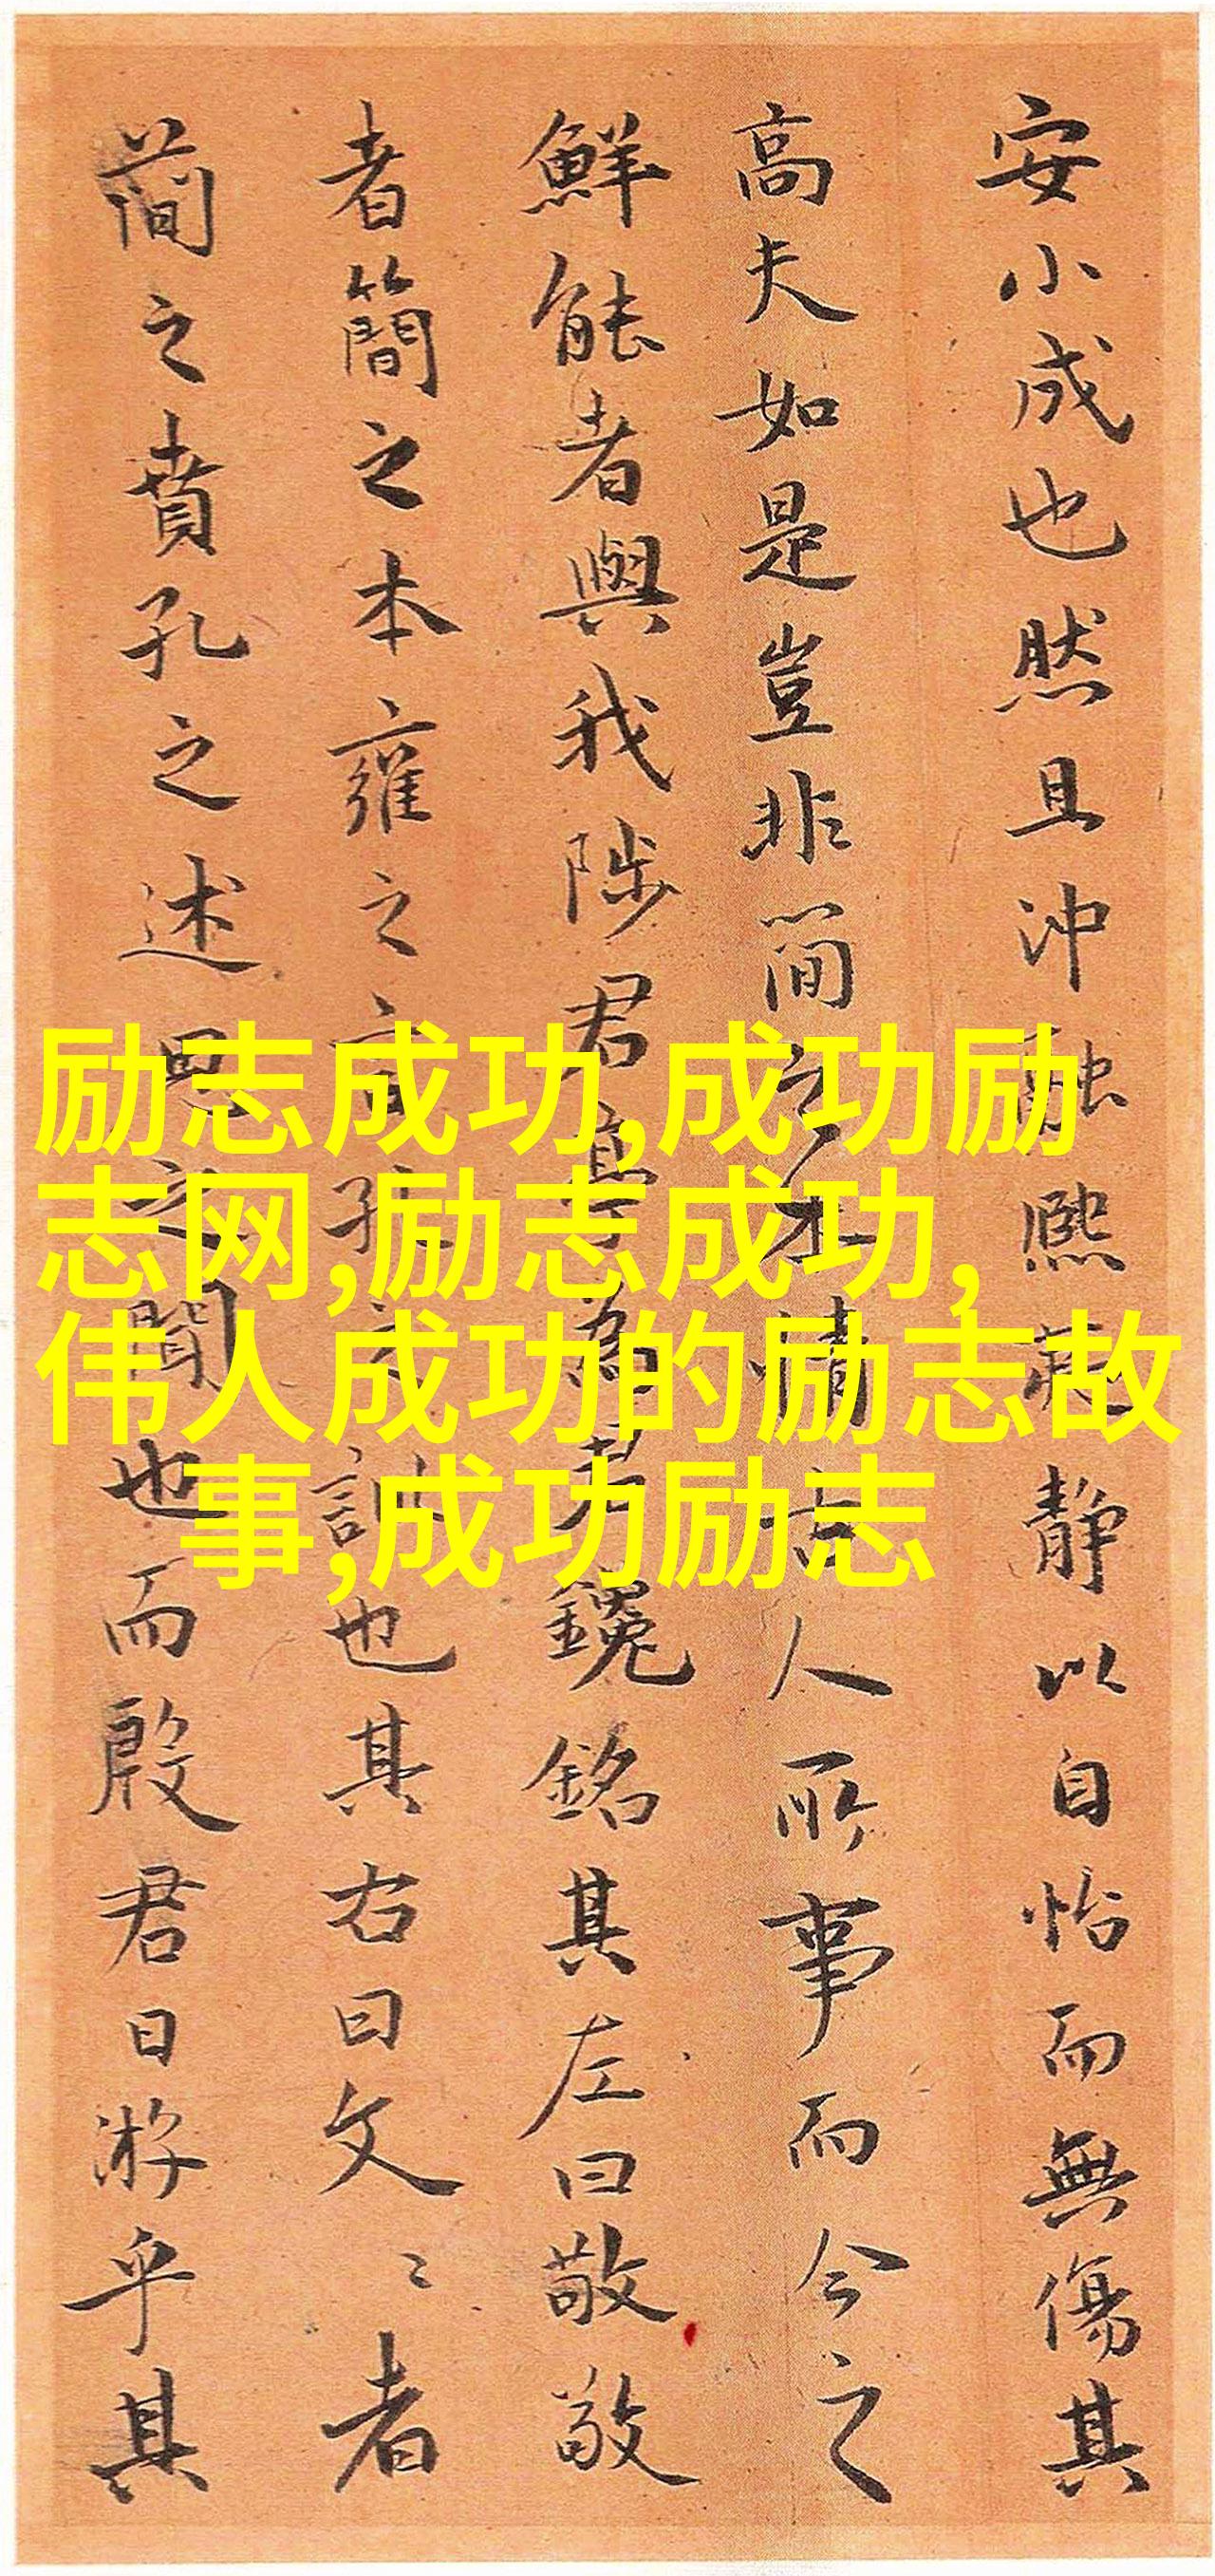 安小成也然且沖融熙□静以自怡而無傷其
高夫如是豈非簡之本情古人所事而今之
鮮能者與我陟君□為若鑱銘其左曰敬敬
者簡之本雍之言孔之訓也其右曰文〻者
簡之賁孔之述思之聞也而殷君日游乎其
励志成功,成功励
志网,励志成功,
伟人成功的励志故
事,成功励志